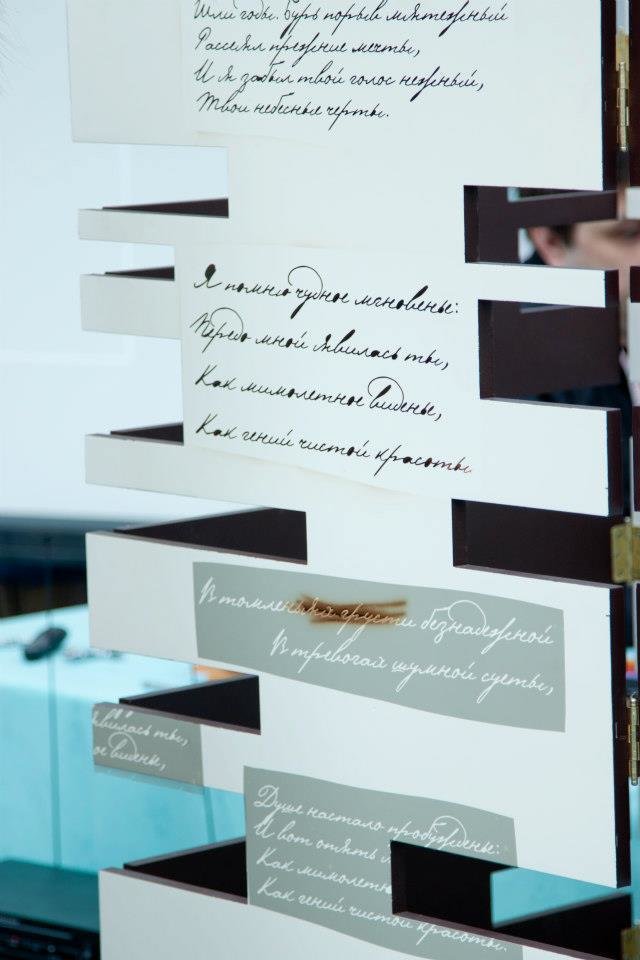 Шли годы. Бурь порыв мятежный
Рассеял прежние мечты,
И я забыл твой голос нежный,
Твои небесные черты.
Я помню чудное мгновенье:
Передо мной явилась ты,
Как мимолетное виденье,
Как гений чистой красоты.
В томленьях грусти безнадежной
В тревогах шумной суеты,
явилась ты,
ое виденье,
Душе настало пробужденье:
И вот опять
Как мимолетн
Как гений чистой красоты.